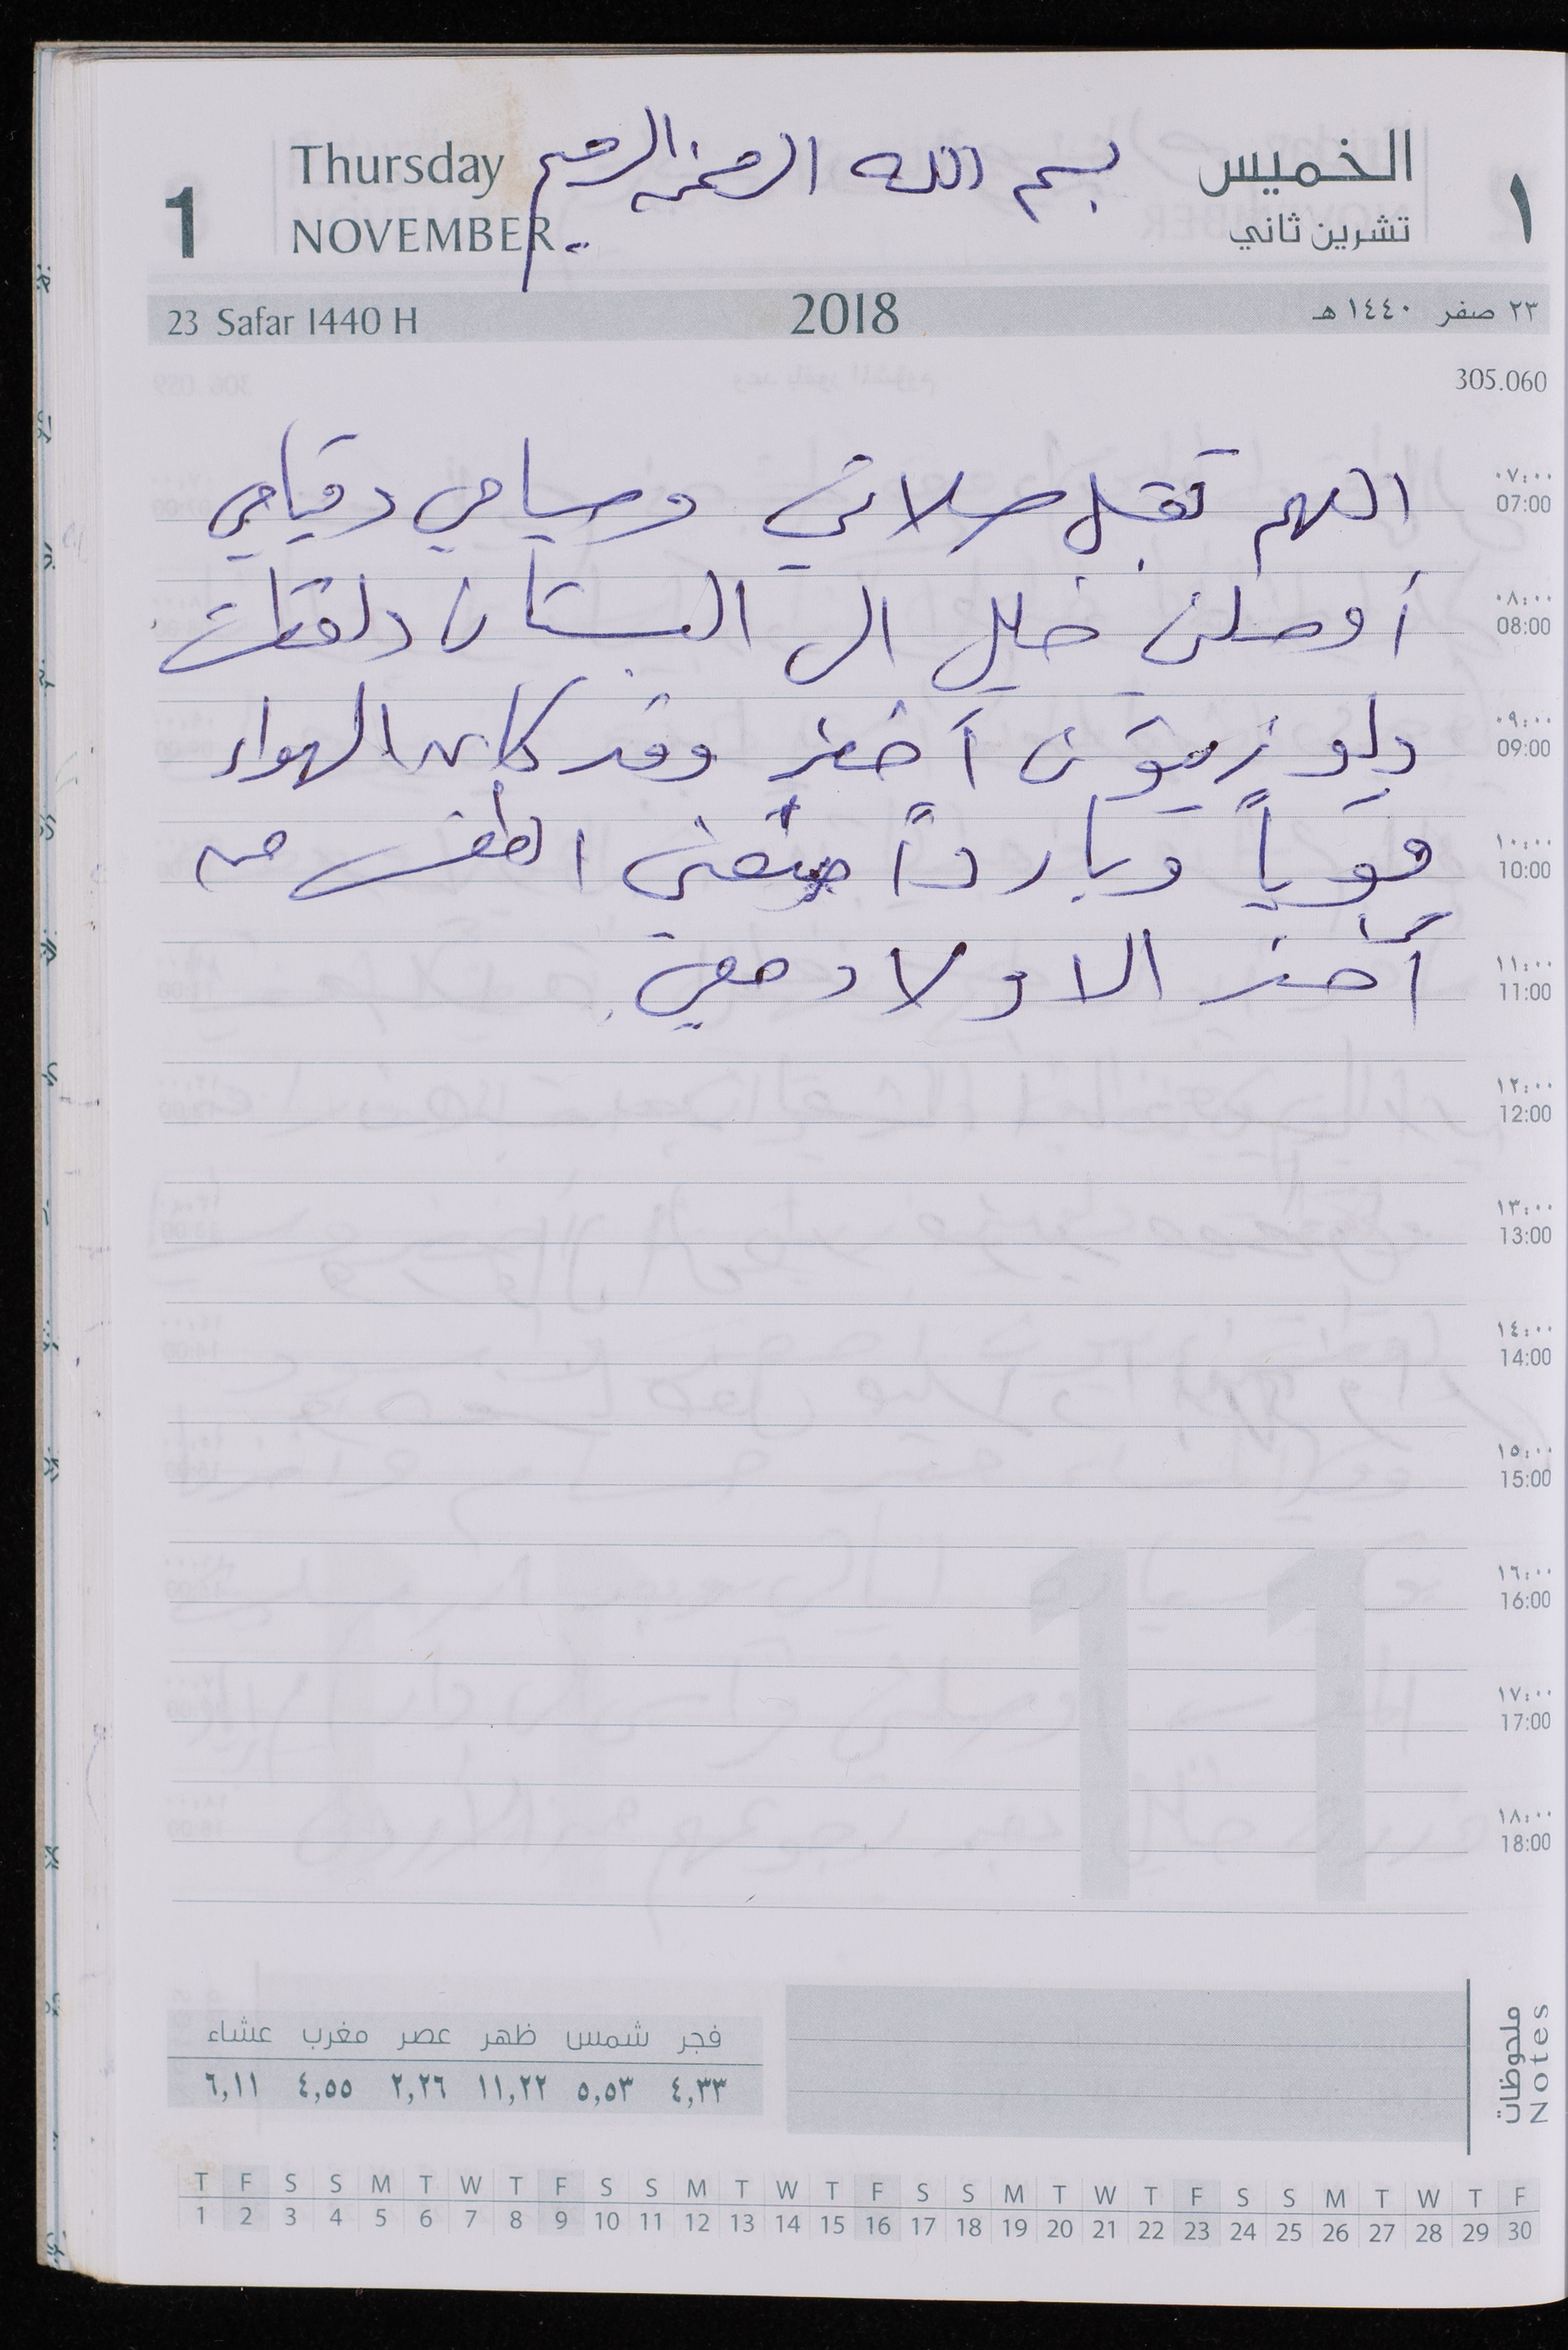 1 Thursday بسم الله الرحمن الرحيم الخميس ١
NOVEMBER تشرين ثاني
23 Safar 1440 H 2018 ٢٣ صفر ١٤٤٠ هـ
305.060
اللهم تقبل صلاتي وصيامي وقيامي ٠٧:٠٠ 07:00
أوصلني خليل الى البستان ولقطت ٠٨:٠٠ 08:00
دلو زيتون أخضر وقد كان الهواء ٠٩:٠٠ 09:00
قوياً وبارداً منعني الطقس من ١٠:٠٠ 10:00
أخذ الاولاد معي. ١١:٠٠ 11:00
١٢:٠٠ 12:00
١٣:٠٠ 13:00
١٤:٠٠ 14:00
١٥:٠٠ 15:00
١٦:٠٠ 16:00
١٧:٠٠ 17:00
١٨:٠٠ 18:00
11
ملحوظات Notes
فجر شمس ظهر عصر مغرب عشاء
٤,٣٣ ٥,٥٣ ١١,٢٢ ٢,٢٦ ٤,٥٥ ٦,١١
T F S S M T W T F S S M T W T F S S M T W T F S S M T W T F
1 2 3 4 5 6 7 8 9 10 11 12 13 14 15 16 17 18 19 20 21 22 23 24 25 26 27 28 29 30